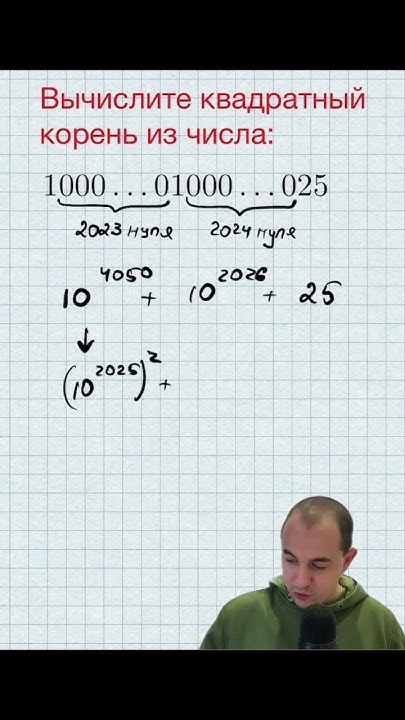 Вычислите квадратный
корень из числа:
1000...01000...025
2023 нуля 2024 нуля
10^4050 + 10^2026 + 25
↓
(10^2025)^2 +